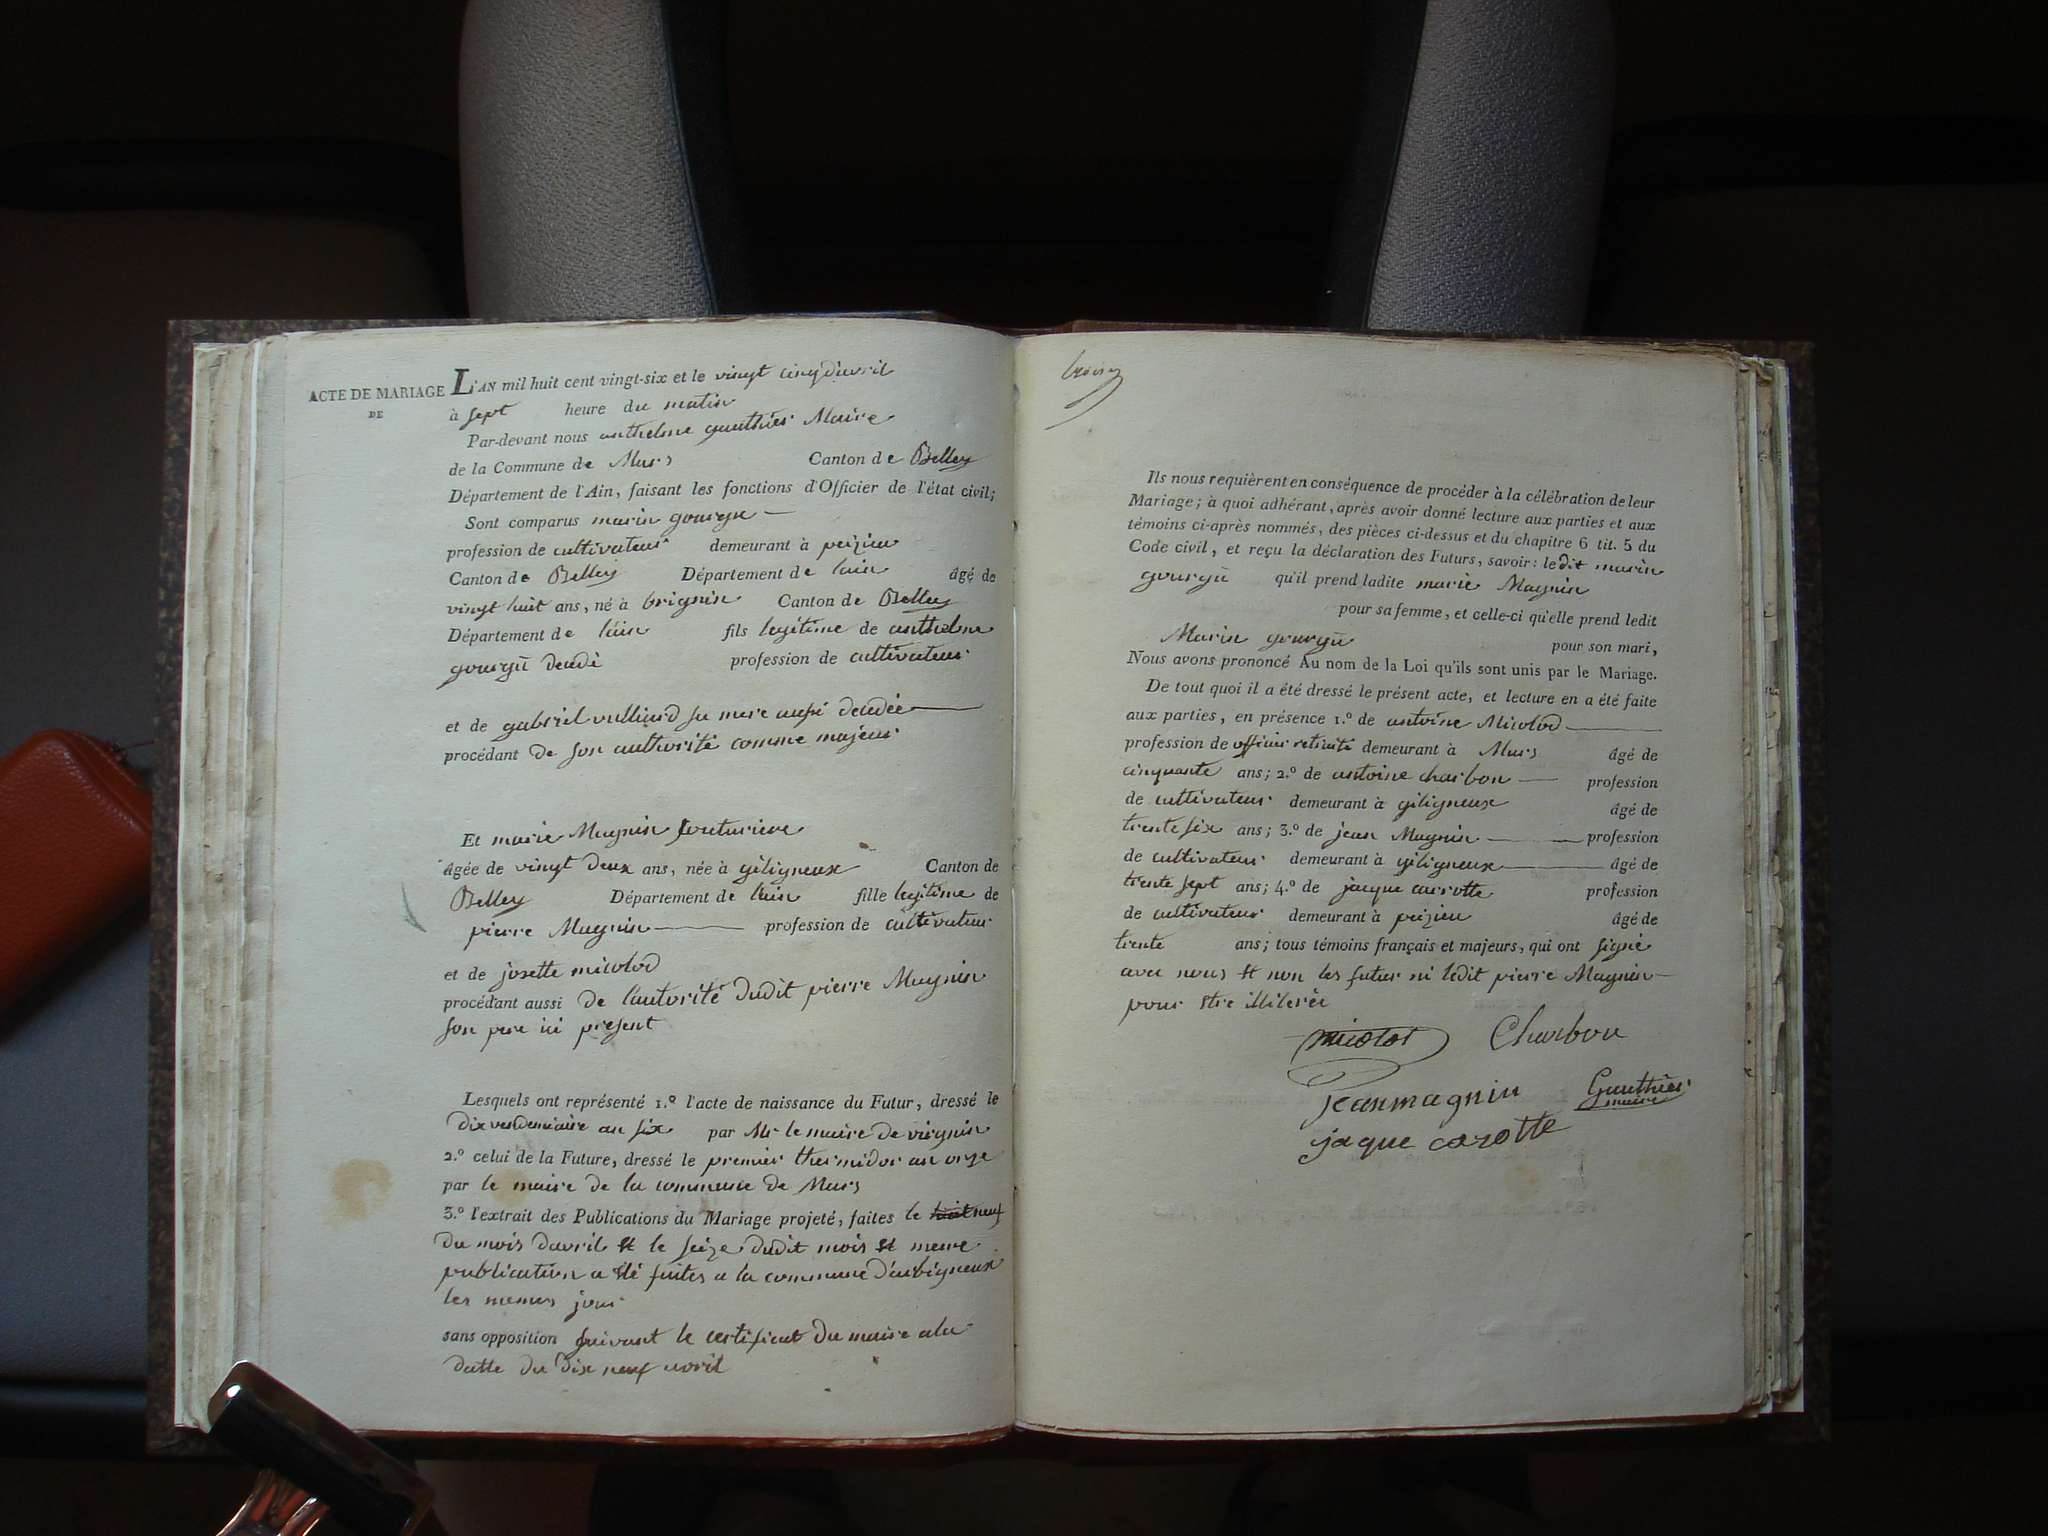 ACTE DE MARIAGE
DE
L'AN mil huit cent vingt-six et le vingt cinq d'avril
à sept heure du matin
Par-devant nous anthelme gauthier Maire
de la Commune de Murs Canton de Belley
Département de l'Ain, faisant les fonctions d'Officier de l'état civil;
Sont comparus marin gourgu
profession de cultivateur demeurant à peizieu
Canton de Belley Département de lain âgé de
vingt huit ans, né à brignin Canton de Belley
Département de lain fils legitime de anthelme
gourgu décédé profession de cultivateur
et de gabriel vulliard sa mere aussi décédée
procédant de son authorité comme majeur
Et marie Magnin couturiere
âgée de vingt deux ans, née à giligneux Canton de
Belley Département de lain fille legitime de
pierre Magnin profession de cultivateur
et de josette micolod
procédant aussi de l'autorité dudit pierre Magnin
son pere ici present
Lesquels ont représenté 1.º l'acte de naissance du Futur, dressé le
dix vendemiaire an six par Mr le maire de virignin
2.º celui de la Future, dressé le premier thermidor an onze
par le maire de la commune de Murs
3.º l'extrait des Publications du Mariage projeté, faites le huit neuf
du mois davril et le seize dudit mois et meme
publication a été faites a la commune d'arbigneux
les memes jour
sans opposition suivant le certificat du maire a la
datte du dix neuf avril
Ils nous requièrent en conséquence de procéder à la célébration de leur
Mariage; à quoi adhérant, après avoir donné lecture aux parties et aux
témoins ci-après nommés, des pièces ci-dessus et du chapitre 6 tit. 5 du
Code civil, et reçu la déclaration des Futurs, savoir: le dit marin
gourgu qu'il prend ladite marie Magnin
pour sa femme, et celle-ci qu'elle prend ledit
Marin gourgu pour son mari,
Nous avons prononcé Au nom de la Loi qu'ils sont unis par le Mariage.
De tout quoi il a été dressé le présent acte, et lecture en a été faite
aux parties, en présence 1.º de antoine Micolod
profession de officier retraité demeurant à Murs âgé de
cinquante ans; 2.º de antoine charbon profession
de cultivateur demeurant à giligneux âgé de
trente six ans; 3.º de jean Magnin profession
de cultivateur demeurant à giligneux âgé de
trente sept ans; 4.º de jacque carrotte profession
de cultivateur demeurant à peizieu âgé de
trente ans; tous témoins français et majeurs, qui ont signé
avec nous et non les futur ni ledit pierre Magnin
pour etre illiterés
micolod Charbon
Jean magnin Gauthier
maire
jaque carotte